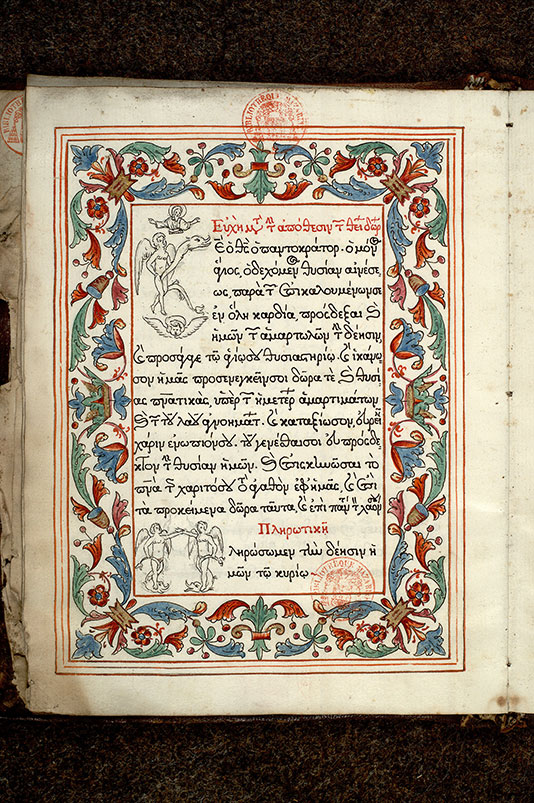 Εὐχὴ μτ τ ἀπόθεσιν τ θεί δώρ
Εὁ θς ὁ παντοκράτορ· ὁ μόν
ἅγιος, ὁ δεχόμεν θυσίαν αἰνέσε
ως, παρὰ τ ἐπικαλουμένων σε
ἐν ὅλη καρδία, πρόσδεξαι κ
ἡμῶν τ ἁμαρτωλῶν τ δέησιν,
κ προσάγαγε τῷ ἁγίῳ σου θυσιαστηρίῳ. κ ἱκάνω
σον ἡμᾶς προσενεγκεῖν σοι δῶρα τὲ κ θυσί
ας πνατικάς, ὑπὲρ τ ἡμετέρ ἁμαρτιμάτων
κ τ τοῦ λαοῦ ἀγνοημάτ. κ καταξίωσον, εὑρεῖν
χάριν ἐνώπιόν σου. τοῦ γενέσθαι σοι εὐπρόσδε
κτον τ θυσίαν ἡμῶν. κ ἐπισκινῶσαι τὸ
πνα τ χάριτός σου τ ἀγαθὸν ἐφ ἡμᾶς, κ ἐπὶ
τὰ προκείμενα δῶρα ταῦτα, κ ἐπὶ πάν τ λαόν
Πληρωτική
ληρώσωμεν τὴν δέησιν ἡ
μῶν τῷ κυρίῳ
BIBLIOTHEQUE MAZARINE